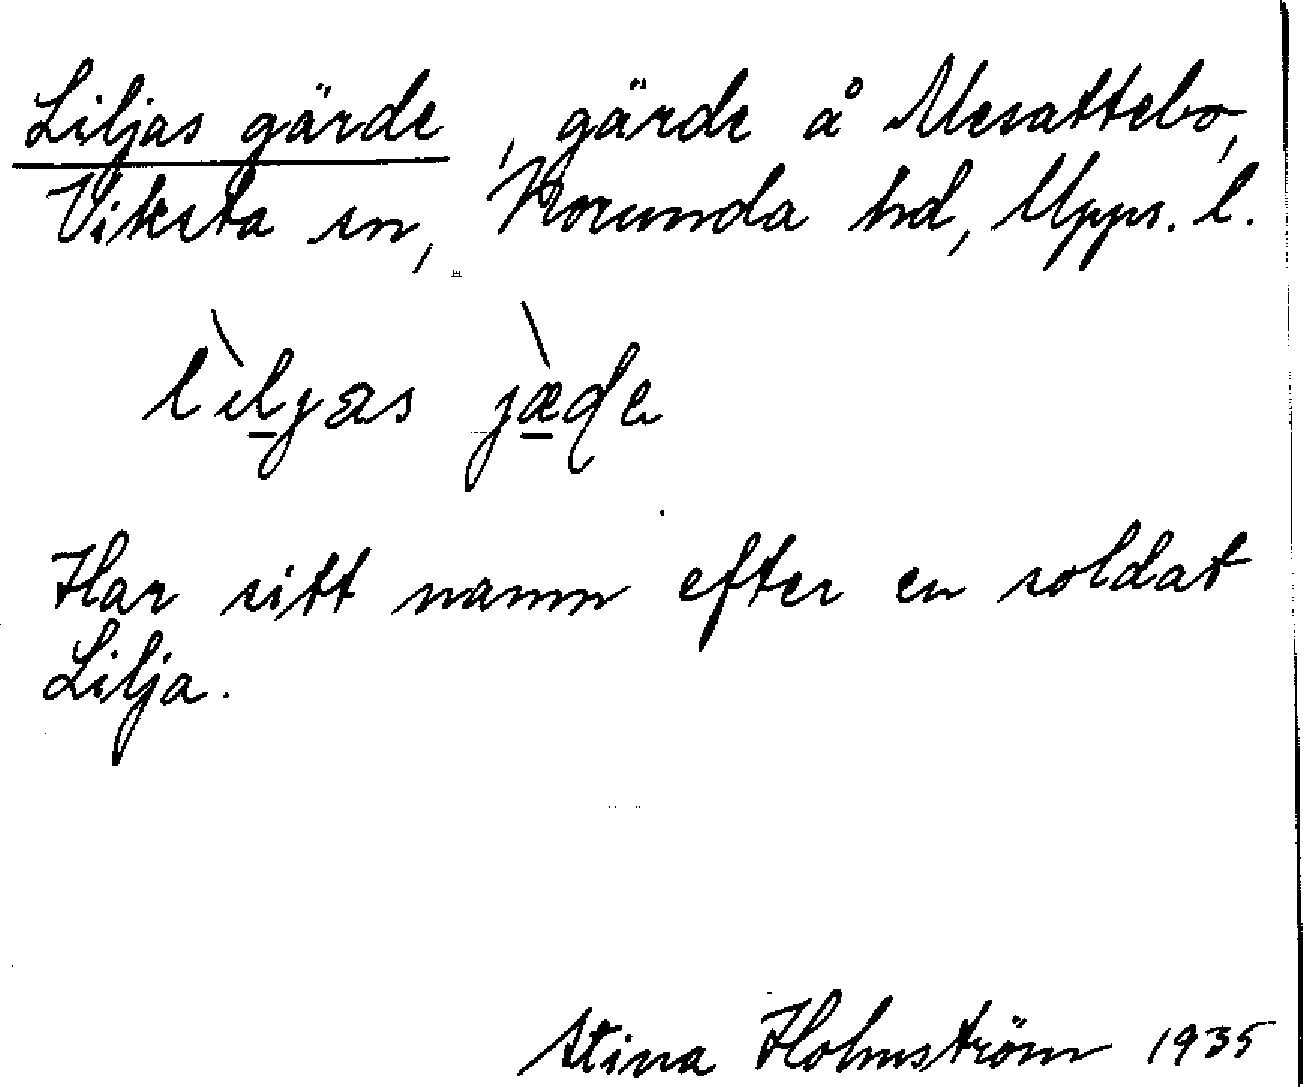 Liljas gärde, gärde å Mesattebo,
Viksta sn, Norunda hd, Upps. l.
lìljas jæ̀de
Har sitt namn efter en soldat
Lilja.
Stina Holmström 1935